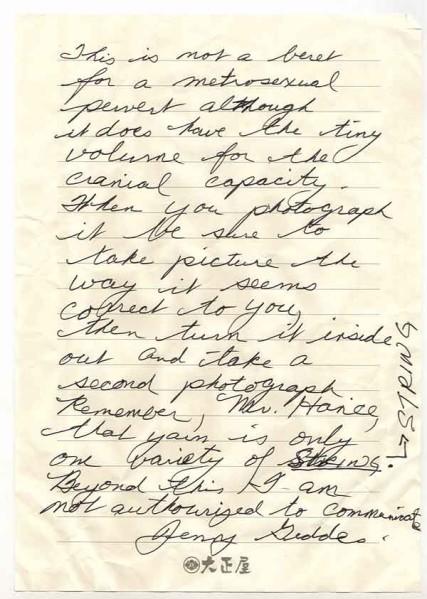 This is not a beret
for a metrosexual
pervert although
it does have the tiny
volume for the
cranial capacity.
When you photograph
it be sure to
take picture the
way it seems
correct to you,
then turn it inside
out and take a
second photograph
Remember, Mr.
that yarn is only
one variety of STRING!
→ STRING
Beyond this I am
not authourized to communicate
Jenny Geddes.
大正屋